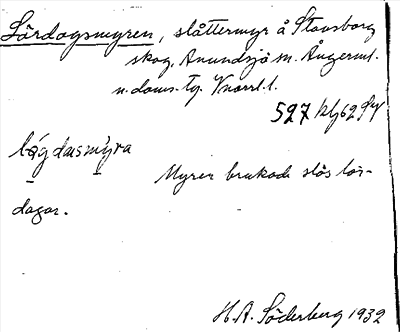 Lördagsmyren, slåttermyr å Stavsborg
skog, Anundsjö sn. Ångerml.
n. doms. tg. Vnorrl. l.
527 klj 62 Sy
lǿgdasmýra
Myren brukade slås lör-
dagar.
H. A. Söderberg 1932